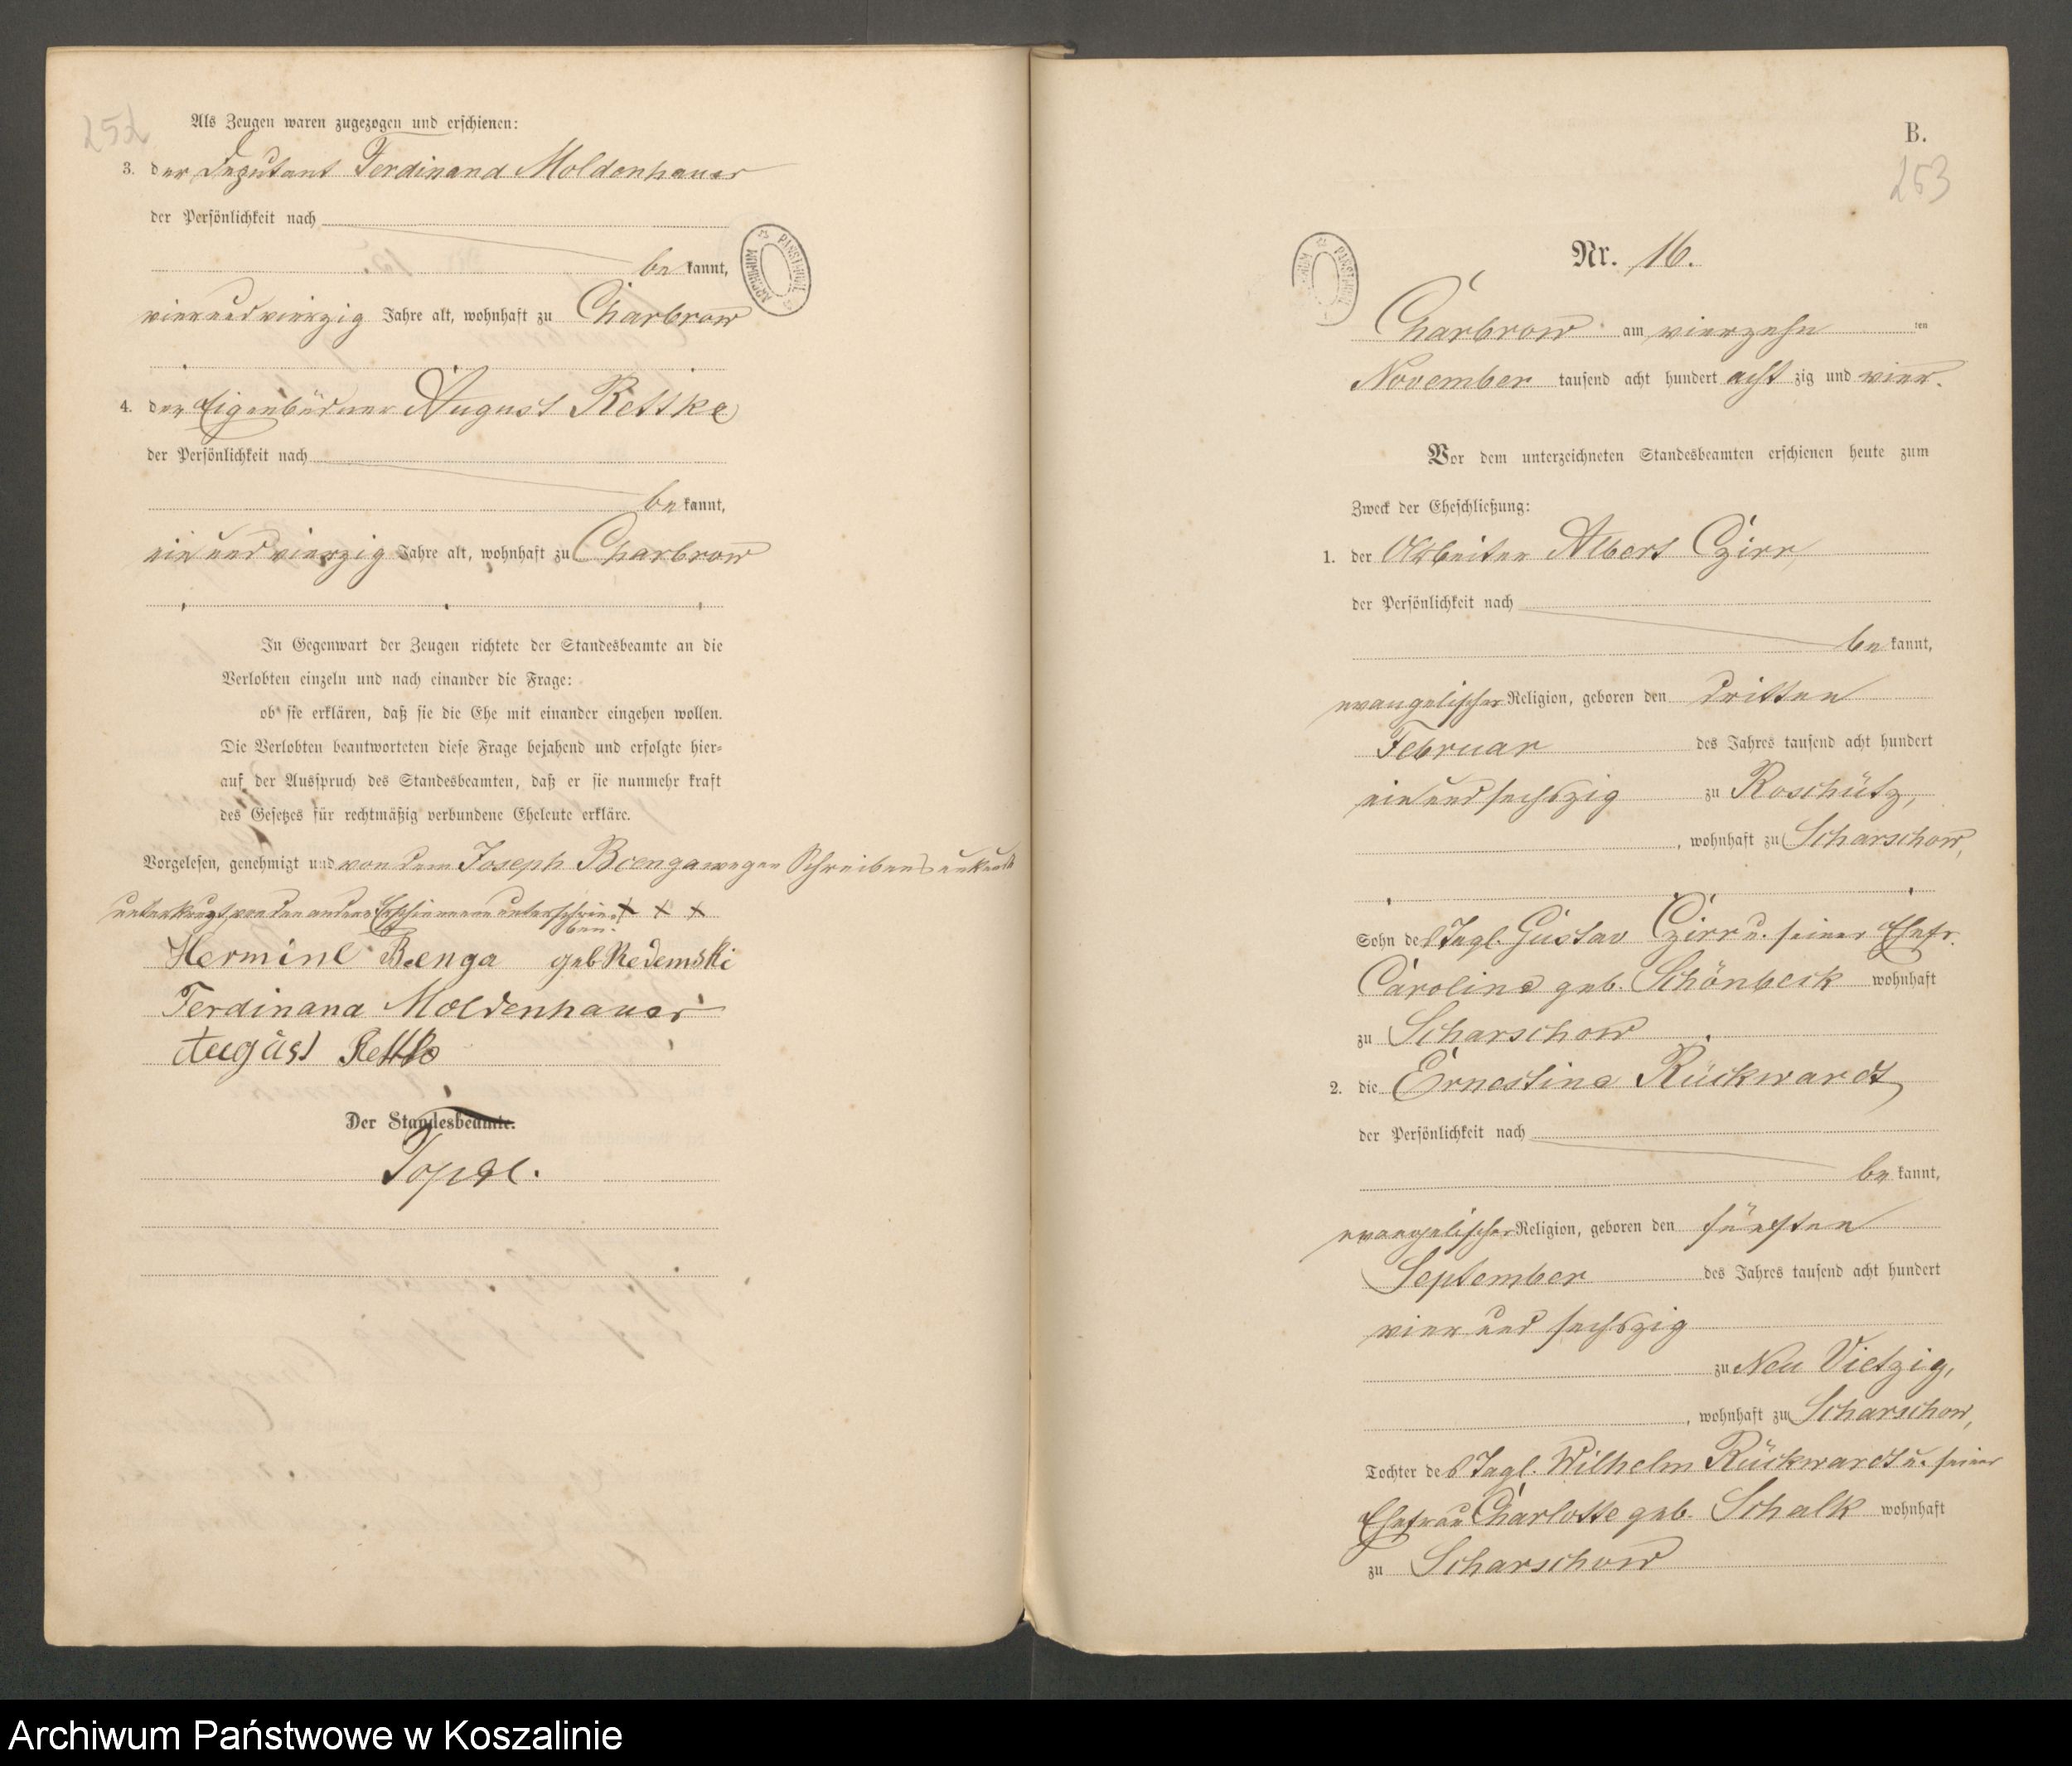 252
Als Zeugen waren zugezogen und erschienen:
3. der Deputant Ferdinand Moldenhauer
der Persönlichkeit nach
be kannt,
vierundvierzig Jahre alt, wohnhaft zu Charbrow
4. der Eigenbüdner August Rettke
der Persönlichkeit nach
be kannt,
ein und vierzig Jahre alt, wohnhaft zu Charbrow
In Gegenwart der Zeugen richtete der Standesbeamte an die
Verlobten einzeln und nach einander die Frage:
ob sie erklären, daß sie die Ehe mit einander eingehen wollen.
Die Verlobten beantworteten diese Frage bejahend und erfolgte hier-
auf der Ausspruch des Standesbeamten, daß er sie nunmehr kraft
des Gesetzes für rechtmäßig verbundene Eheleute erkläre.
Vorgelesen, genehmigt und von dem Joseph Brenga wegen Schreibens
unterkreuzt, von den andern Erschienenen unterschrie- + + +
ben.
Hermine Brenga geb Redemski
Ferdinand Moldenhauer
August Rettke
Der Standesbeamte.
ARCHIWUM PAŃSTWOWE
B.
253
Nr. 16.
Charbrow am vierzehn ten
November tausend acht hundert acht zig und vier.
Vor dem unterzeichneten Standesbeamten erschienen heute zum
Zweck der Eheschließung:
1. der Arbeiter Albert Czirr
der Persönlichkeit nach
be kannt,
evangelischer Religion, geboren den dritten
Februar des Jahres tausend acht hundert
ein und sechszig zu Roschütz,
, wohnhaft zu Scharschow,
Sohn des Tagl. Gustav Czirr u. seiner Ehefr.
Caroline geb. Schönbeck wohnhaft
zu Scharschow
2. die Ernestine Rückwardt
der Persönlichkeit nach
be kannt,
evangelischer Religion, geboren den fünften
September des Jahres tausend acht hundert
vier und sechszig
zu Neu Vietzig,
, wohnhaft zu Scharschow,
Tochter des Tagl. Wilhelm Rückwardt u. seiner
Ehefrau Charlotte geb. Schalk wohnhaft
zu Scharschow
Archiwum Państwowe w Koszalinie